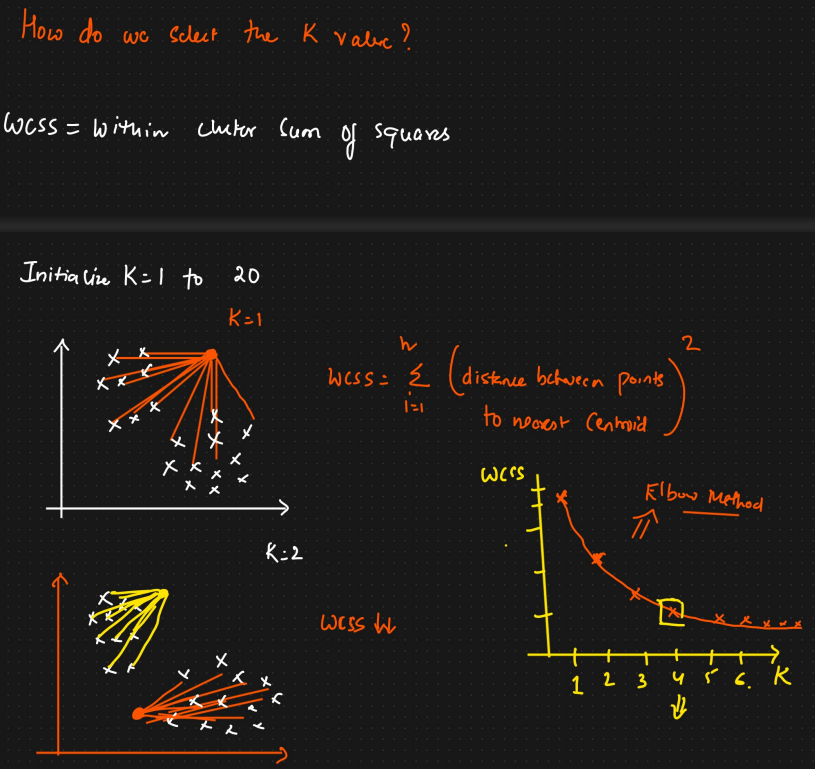 How do we select the K value?
WCSS = Within cluster Sum of squares
Initialize K=1 to 20
K=1
WCSS = n Σ i=1 (distance between points to nearest Centroid)2
WCSS
Elbow Method
K=2
WCSS ↓↓
1 2 3 4 5 6. K